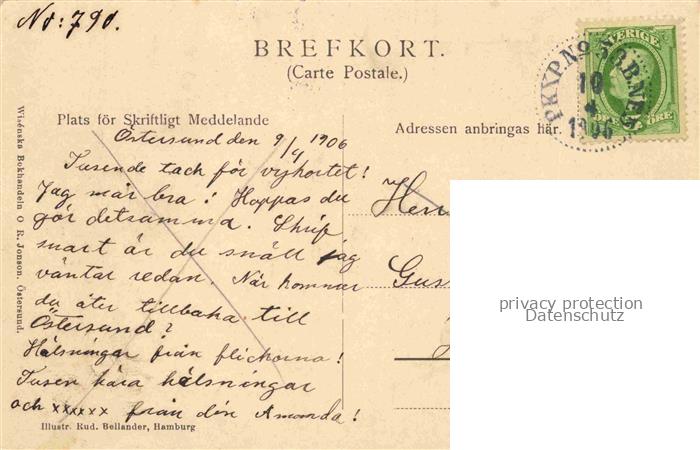 No: 790.
BREFKORT.
(Carte Postale.)
SVERIGE
PKXP. No
10
4
1906
ÖRE
Plats för Skriftligt Meddelande
Adressen anbringas här.
Östersund den 9/4 1906
Tusende tack för vykortet!
Jag mår bra! Hoppas du
gör detsamma. Skrif
snart är du snäll jag
väntar redan. När kommer
du åter tillbaka till
Östersund?
Hälsningar från flickorna!
Tusen kära hälsningar
och xxxxxx från din Amanda!
Herr
Gus
privacy protection
Datenschutz
Illustr. Rud. Bellander, Hamburg
Wisénska Bokhandeln O R. Jonson. Östersund.